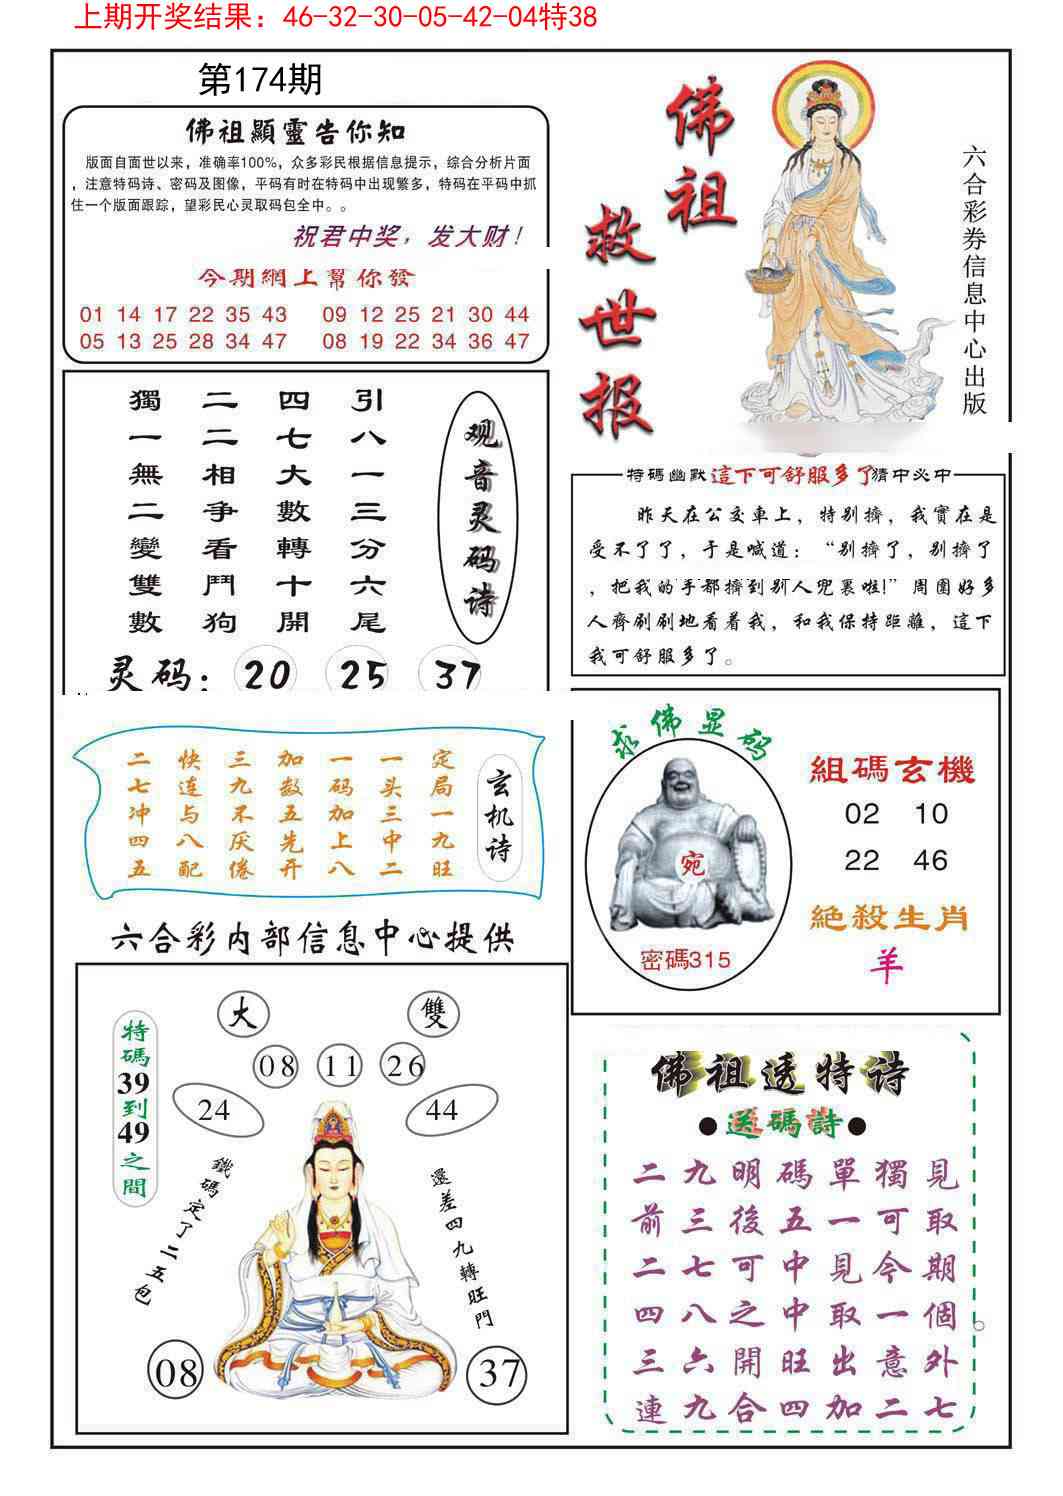 上期开奖结果：46-32-30-05-42-04特38
第174期
佛祖顯靈告你知
版面自面世以来，准确率100%，众多彩民根据信息提示，综合分析片面
，注意特码诗、密码及图像，平码有时在特码中出现繁多，特码在平码中抓
住一个版面跟踪，望彩民心灵取码包全中。。
祝君中奖，发大财！
今期網上幫你發
01 14 17 22 35 43 09 12 25 21 30 44
05 13 25 28 34 47 08 19 22 34 36 47
佛祖
救世报
六合彩券信息中心出版
观音灵码诗
引八一三分六尾
四七大數轉十開
二二相争看鬥狗
獨一無二變雙數
灵码：20 25 37
特碼幽默這下可舒服多了猜中必中
昨天在公交車上，特别擠，我實在是
受不了了，于是喊道：“别擠了，别擠了
，把我的手都擠到别人兜裏啦!”周圍好多
人齊刷刷地看着我，和我保持距離，這下
我可舒服多了。
玄机诗
定局一九旺
一头三中二
一码加上八
加数五先开
三九不厌倦
快连与八配
二七冲四五
求佛显码
宛
密碼315
組碼玄機
02 10
22 46
絕殺生肖
羊
六合彩内部信息中心提供
特碼39到49之間
大
雙
08 11 26
24
44
鐵碼定了二五包
還差四九轉旺門
08
37
佛祖透特诗
●送碼詩●
二九明碼單獨見
前三後五一可取
二七可中見今期
四八之中取一個。
三六開旺出意外
連九合四加二七